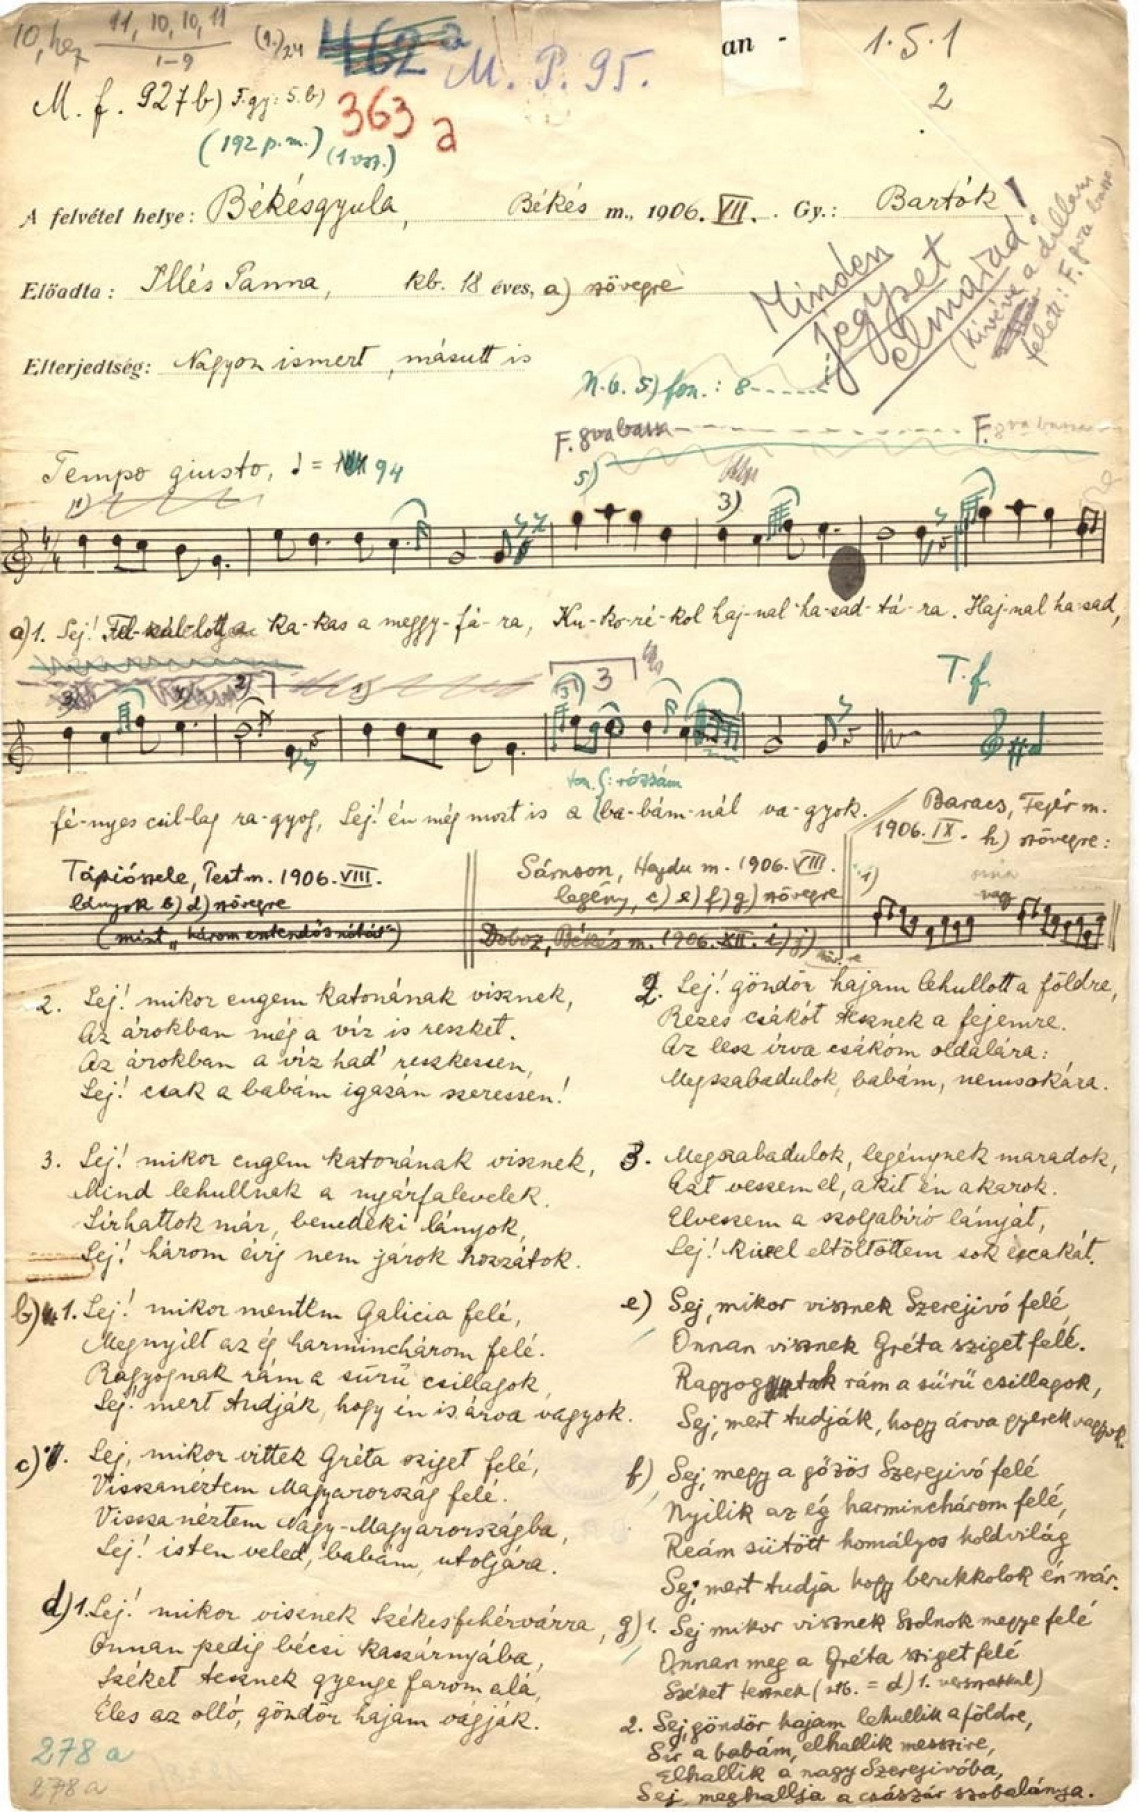 10, hez 11, 10, 10, 11
1-9
(1.) 24
462 a
M. P. 95.
an -
1.5.1
2
M. f. 927b) F.gy: 5.b)
363 a
(192 p.m.) (1 vsz.)
A felvétel helye: Békésgyula, Békés m., 1906. VII. Gy.: Bartók
Előadta: Illés Panna, kb. 18 éves, a) szövegre
Elterjedtség: Nagyon ismert, másutt is
Minden
jegyzet
elmarad!
(kivéve a dallam
felett: F. 8va bassa...)
N.b. 5) fon.: 8-----
F. 8va bassa
F. 8va bassa
Tempo giusto, = 94
1)
5)
3)
a) 1. Sej! Fel-szál-lott a ka-kas a meggy-fá-ra, Ku-ko-ré-kol haj-nal-ha-sad-tá-ra. Haj-nal ha-sad,
2)
3
T. f.
fon. 5: rózsám
fé-nyes csil-lag ra-gyog, Sej! én még most is a ba-bám-nál va-gyok.
Baracs, Fejér m.
1906. IX. h) szövegre:
Tápiószele, Pest m. 1906. VIII.
lányok b) d) szövegre
(mint „három estendős nótát")
Sámson, Hajdu m. 1906. VIII.
legény, c) e) f) g) szövegre
Doboz, Békés m. 1906. XII. i) j)
vagy
2. Sej! mikor engem katonának visznek,
Az árokban még a víz is reszket.
Az árokban a víz had' reszkessen,
Sej! csak a babám igazán szeressen!
3. Sej! mikor engem katonának visznek,
Mind lehullnak a nyárfalevelek.
Sírhattok már, benedeki lányok,
Sej! három évig nem járok hozzátok.
b) 1. Sej! mikor mentem Galicia felé,
Megnyílt az ég harminchárom felé.
Ragyognak rám a sűrű csillagok,
Sej! mert tudják, hogy én is árva vagyok.
c) 1. Sej, mikor vittek Gréta sziget felé,
Visszanéztem Magyarország felé.
Vissza néztem Nagy-Magyarországba,
Sej! isten veled, babám, utoljára.
d) 1. Sej! mikor visznek Székesfehérvárra,
Onnan pedig bécsi kaszárnyába,
Széket tesznek gyenge farom alá,
Éles az olló, göndör hajam vágják.
278 a
278 a
2. Sej! göndör hajam lehullott a földre,
Rezes csákót tesznek a fejemre.
Az lesz írva csákóm oldalára:
Megszabadulok, babám, nemsokára.
3. Megszabadulok, legénynek maradok,
Azt veszem el, akit én akarok.
Elveszem a szolgabíró lányát,
Sej! kivel eltöltöttem sok écakát.
e) Sej, mikor visznek Szerejivó felé,
Onnan visznek Gréta sziget felé.
Ragyogtak rám a sűrű csillagok,
Sej, mert tudják, hogy árva gyerek vagyok.
f) Sej, megy a gőzös Szerejivó felé
Nyilik az ég harminchárom felé,
Reám sütött homályos holdvilág
Sej, mert tudja hogy berukkolok én már.
g) 1. Sej mikor visznek Szolnok megye felé
Onnan meg a Gréta sziget felé
Széket tesznek (stb. = d) 1. versszakkal)
2. Sej, göndör hajam lehullik a földre,
Sír a babám, elhallik messzire,
Elhallik a nagy Szerejivóba,
Sej, meghallja a császár szobalánya.